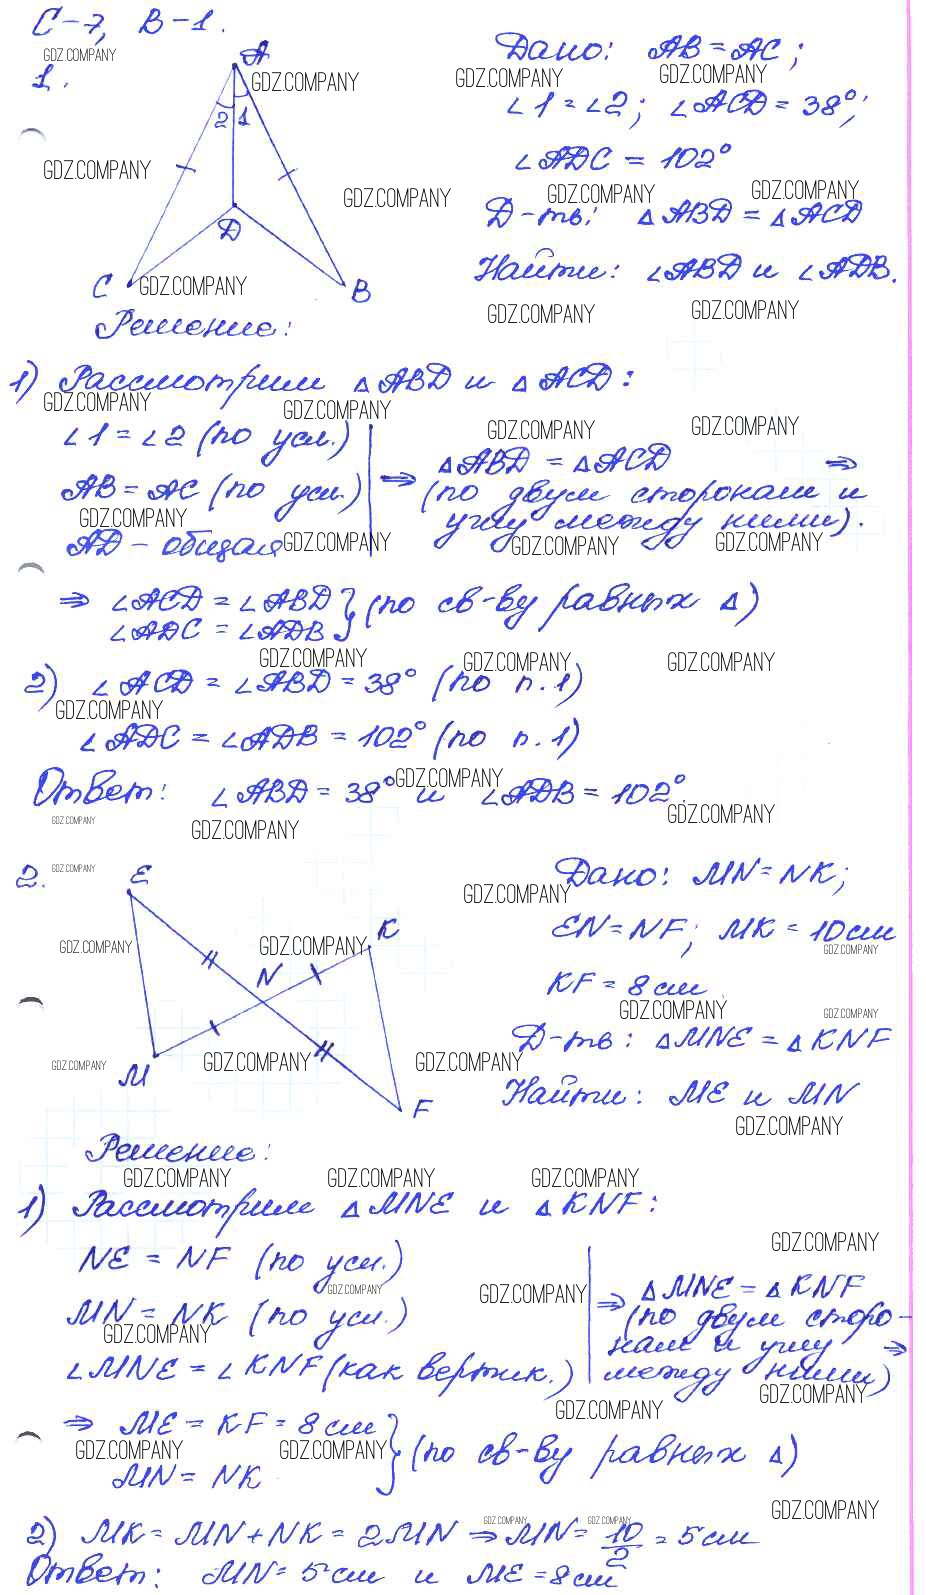 С-7, В-1.
1.
A
2 1
D
C
B
Дано: AB = AC;
∠1 = ∠2; ∠ACD = 38°;
∠ADC = 102°
Д-ть: △ABD = △ACD
Найти: ∠ABD и ∠ADB.
Решение:
1) Рассмотрим △ABD и △ACD:
∠1 = ∠2 (по усл.)
AB = AC (по усл.)
AD - общая
⇒ △ABD = △ACD ⇒
(по двум сторонам и
углу между ними).
⇒ ∠ACD = ∠ABD
∠ADC = ∠ADB } (по св-ву равных △)
2) ∠ACD = ∠ABD = 38° (по п.1)
∠ADC = ∠ADB = 102° (по п.1)
Ответ: ∠ABD = 38° и ∠ADB = 102°.
2.
E
K
N
M
F
Дано: MN = NK;
EN = NF; MK = 10 см
KF = 8 см
Д-ть: △MNE = △KNF
Найти: ME и MN
Решение:
1) Рассмотрим △MNE и △KNF:
NE = NF (по усл.)
MN = NK (по усл.)
∠MNE = ∠KNF (как вертик.)
⇒ △MNE = △KNF
(по двум сторо-
нам и углу ⇒
между ними)
⇒ ME = KF = 8 см
MN = NK } (по св-ву равных △)
2) MK = MN + NK = 2MN ⇒ MN = 10/2 = 5 см
Ответ: MN = 5 см и ME = 8 см
GDZ.COMPANY